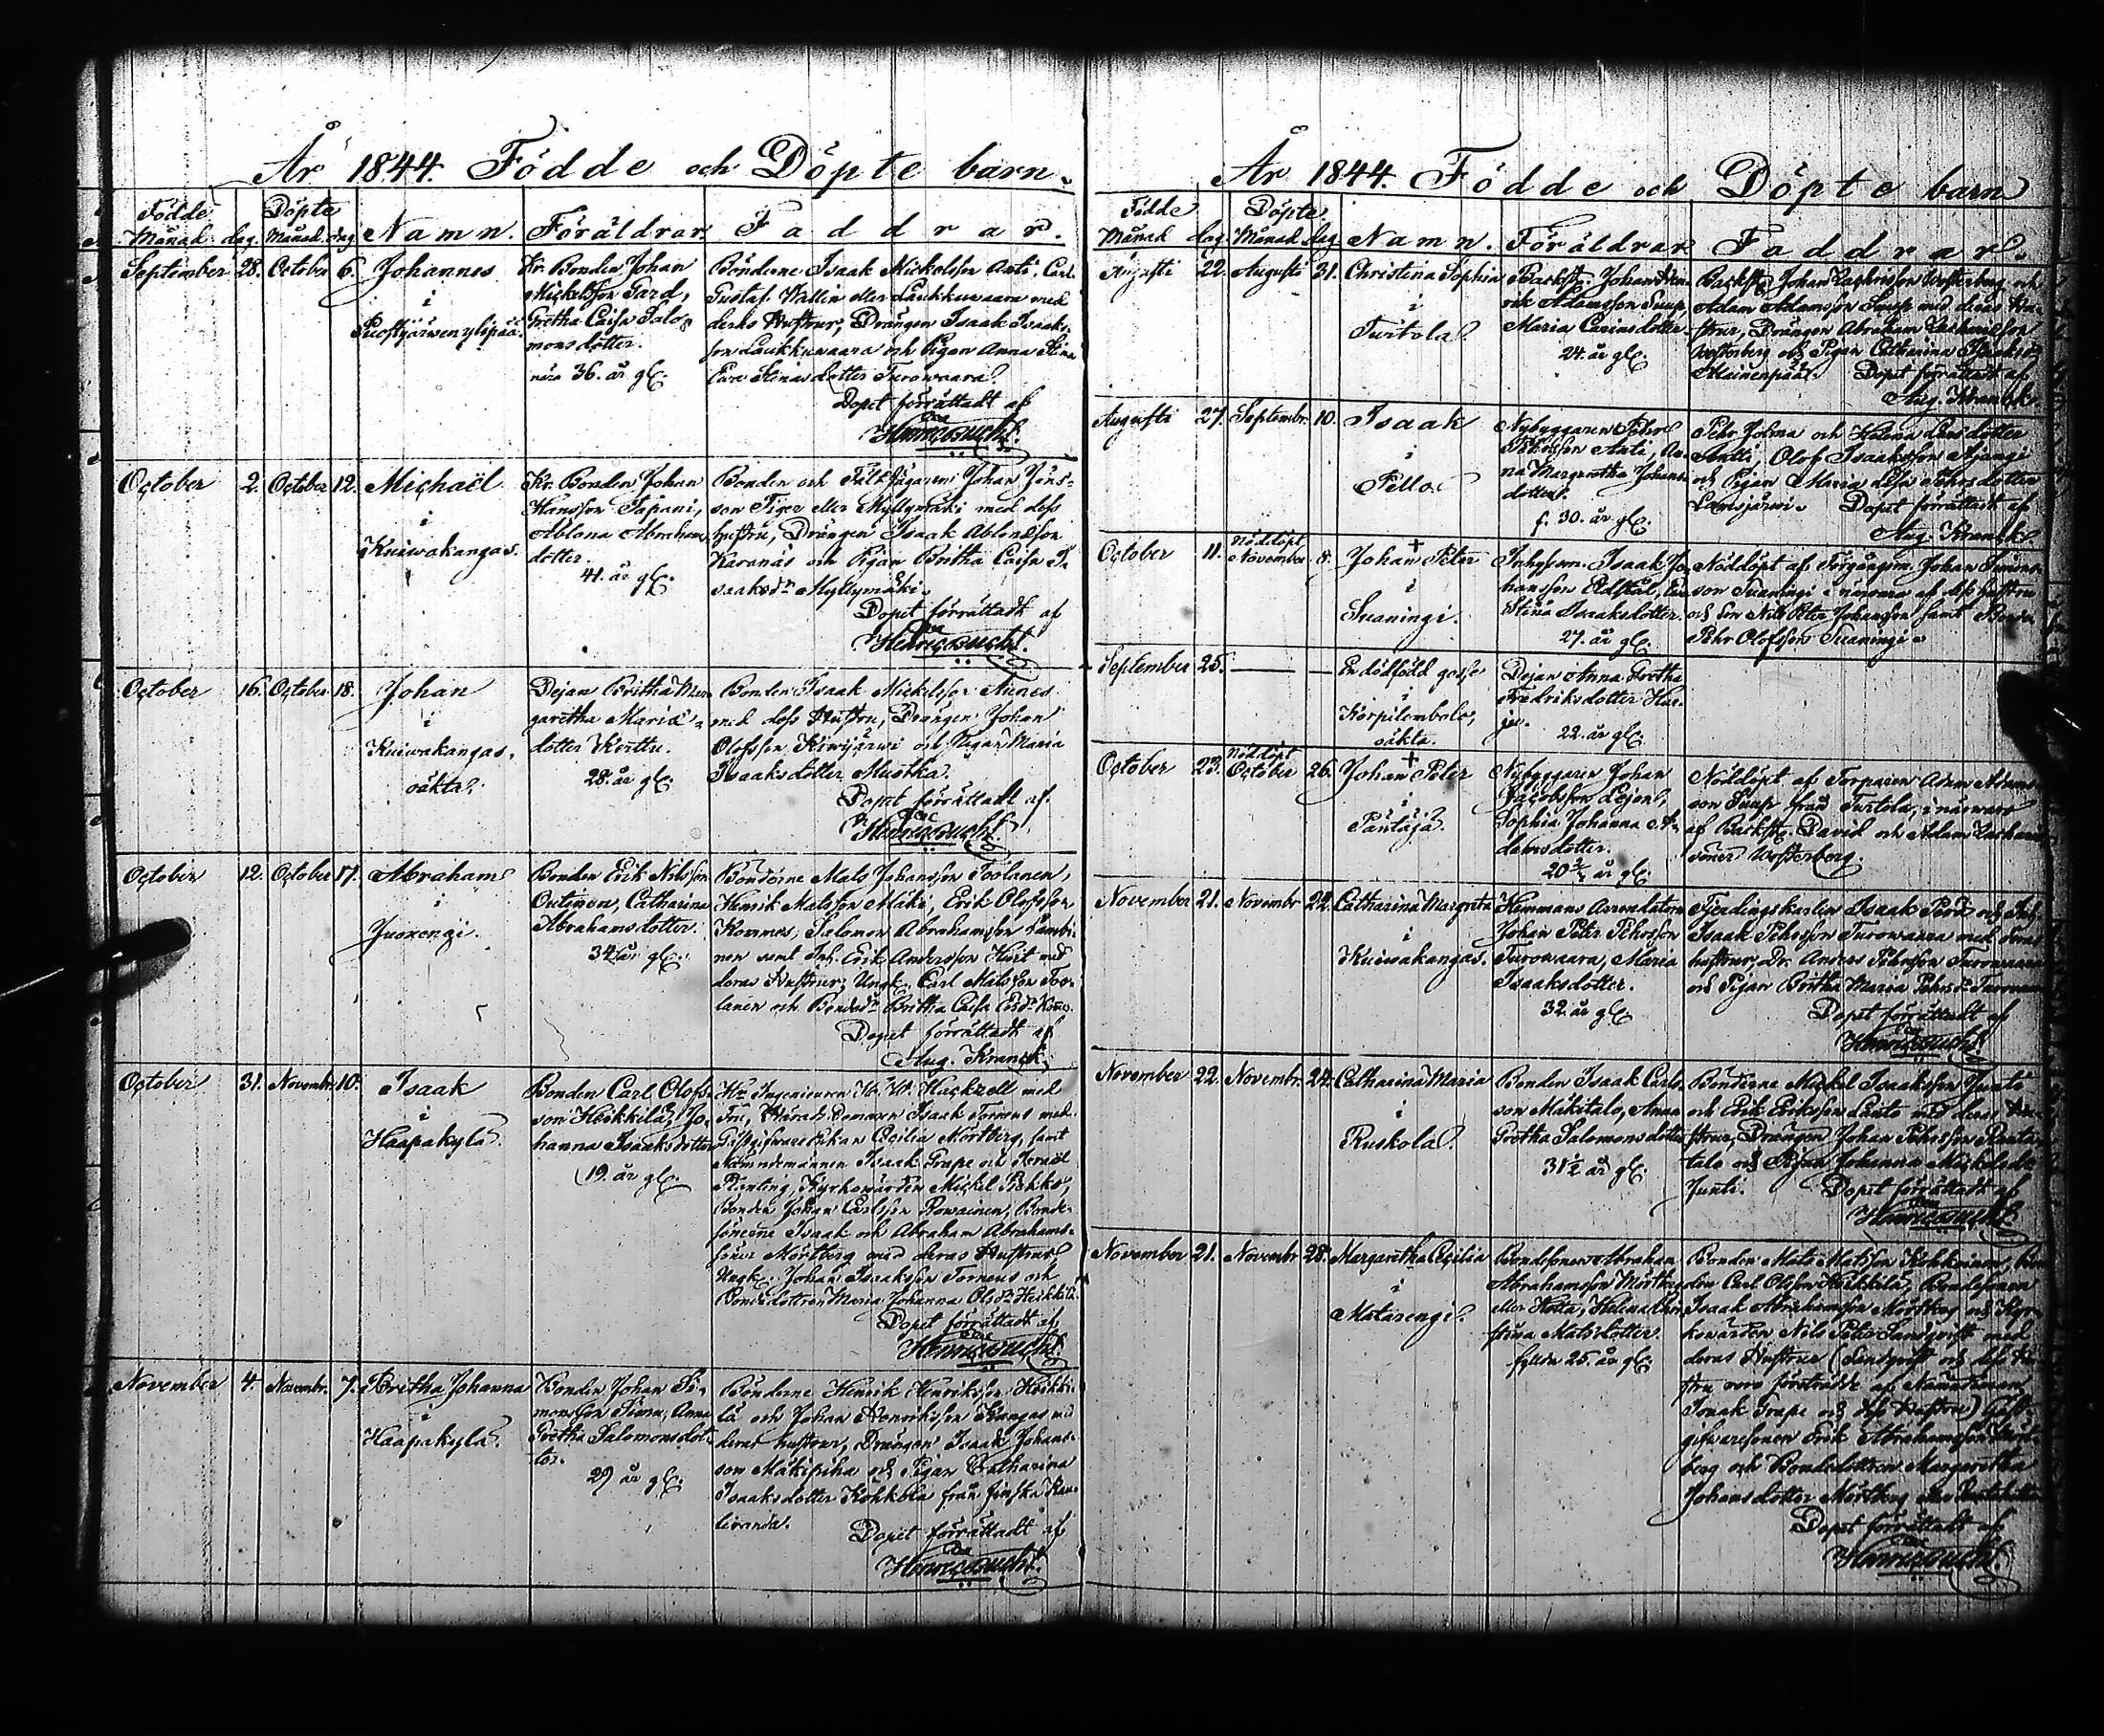 År 1844. Födde och Döpte barn.
Födde Döpte
Månad dag. Månad dag Namn. Föräldrar. Faddrar.
September 28. October 6. Johannes
i
Kr. Bonden Johan
Mickelsson Tard,
Gretha Caisa Salo-
mons dotter.
nära 36. år gl.
Bönderne Isaak Mickelsson Anti, Carl
Gustaf Wallin eller Laukkuwaara med
deras Hustrur, Drängen Isaak Isaaks-
son Laukkuwaara och Pigan Anna Stina
Ewa Stinas dotter Turowaara.
Dopet förrättadt af
October 2. October 12. Michaël
i
Kuiwakangas.
Kr. Bonden Johan
Hansson Tapani,
Ablona Abrahams
dotter.
41. år gl.
Bonden och Fältjägaren Johan Jöns-
son Tiger eller Myllymäki med dess
hustru, Drängen Isaak Ablonsson
Karanás och Pigan Britha Caisa I-
saaksdr Myllymäki.
Dopet förrättadt af
October 16. October 18. Johan
i
Kuiwakangas.
oäkta.
Dejan Britha Mar-
garetha Mariæ-
dotter Kerttu.
28. år gl.
Bonden Isaak Mickelsson Funes
med dess Hustru, Drängen Johan
Olofsson Kiwijärwi och Pigan Maria
Isaaksdotter Mustka.
Dopet förrättadt af
October 12. October 17. Abraham
i
Juoxengi.
Bonden Erik Nilsson
Outinen, Catharina
Abrahamsdotter.
34 år gl.
Bönderne Mats Johansson Toolanen,
Henrik Matsson Mäki, Erik Olofsson
Kommes, Salomon Abrahamsson Lambi-
nen samt Inh. Erik Andersson Hwit med
deras Hustrur, Ungk. Carl Matsson Too-
lanen och Bondedr Britha Caisa Ersdr
Dopet förrättadt af
Aug. Kranck.
October 31. Novembr. 10. Isaak
i
Haapakylä.
Bonden Carl Olofs-
son Heikkilä, Jo-
hanna Isaaksdotter
19. år gl.
Hr Ingenieuren Hackzell med
Fru, Härads Domaren Isaak Torneus med
Cecilia Mörtberg, samt
Nämndemännen Isaak Grape och Israël
Planting, Kyrkowärden Mickel Pekko,
Bonden Johan Carlsson Rowainen, Bonde-
sönerne Isaak och Abraham Abrahams-
söner Mörtberg med deras Hustrur
Ungk. Johan Isaaksson Torneus och
Bondedottren Maria Johanna Olsdr Heikkilä.
Dopet förrättadt af
November 4. Novembr. 7. Britha Johanna
i
Haapakylä.
Bonden Johan Si-
monsson Simu, Anna
Gretha Salomonsdot-
ter.
29 år gl.
Bönderne Henrik Henriksson Heikki-
lä och Johan Henriksson Kangas med
deras hustrur, Drängen Isaak Johans-
son Mäkipiha och Pigan Catharina
Isaaksdotter Kohkola från finska
Dopet förrättadt af
År 1844. Födde och Döpte barn
Födde Döpte.
Månad dag. Månad dag Namn. Föräldrar Faddrar.
Augusti 22. Augusti 31. Christina Sophia
i
Turtola.
Backst. Johan Hen-
rik Adamsson Suup,
Maria Carinsdotter.
24 år gl.
Backst. Johan Zachrisson Wosterberg och
Adam Adamsson Suup med deras Hu-
strur, Drängen Abraham Zachrisson
Wosterberg och Pigan Catharina Isaaksdr
Mainenpää. Dopet förrättadt af
Aug. Kranck.
Augusti 27. Septembr. 10. Isaak
i
Pello.
Nybyggaren Pehr
Pehrsson Anti, An-
na Margaretha Johans-
dotter.
f. 30. år gl.
Pehr Jolma och Helena Larsdotter
Olof Isaaksson Ajangi
och Pigan Maria Lisa Pehrsdotter
Lamsjärwi. Dopet förrättadt af
Aug. Kranck.
October 11. Nöddöpt November 8. Johan Peter
i
Suaningi.
Inhysesm. Isaak Jo-
hansson
Stina Isaaksdotter.
27. år gl.
Nöddöpt af Torgångsm. Johan Simons-
son Suaningi i närwaro af dess hustru
och son Nils Peter Johansson samt Bonden
Pehr Olofsson Suaningi.
September 25. En dödfödd gosse
i
Korpilombolo,
oäkta.
Dejan Anna Gretha
Fredriksdotter Har-
ju.
22. år gl.
October 23. Nöddöpt October 26. Johan Peter
i
Pantaja.
Nybyggaren Johan
Jacobsson Lejon,
Sophia Johanna A-
damsdotter.
20 3/4 år gl.
Nöddöpt af Torparen Adam Adams-
son Suup från Turtola, i närwaro
af Backst. David och Adam Zacharias
söner Wosterberg.
November 21. Novembr 22. Catharina Margreta
i
Kuiwakangas.
Hemmans Arrendatorn
Johan Peter Pehrsson
Turowaara, Maria
Isaaksdotter.
32. år gl.
Fjerdingskarlen Isaak och
Isaak Pehrsson Turowaara med deras
hustrur, Dr. Anders Pehrsson Turowaara
och Pigan Britha Maria Pehrsdr Turowaara
Dopet förrättadt af
November 22. Novembr. 24. Catharina Maria
i
Ruskola.
Bonden Isaak Carls-
son Mäkitalo, Anna
Gretha Salomonsdotter
31 1/2 år gl.
Bönderne Mickel Isaaksson Junti
och Erik Eriksson Lanto med deras Hu-
strur, Drängen Johan Pehrsson Ranta-
talo och Pigan Johanna Mickelsdr
Junti. Dopet förrättadt af
November 21. Novembr 28. Margaretha Cecilia
i
Matarengi.
Bondesonen Abraham
Abrahamsson Mörtberg
eller Hotta, Helena Chri-
stina Matsdotter.
fyllda 25. år gl.
Bonden Mats Matsson Kohkoinen, Bon-
den Carl Olsson Heikkilä, Bondesonen
Isaak Abrahamsson Mörtberg och Kyr-
kowärden Nils Peter Sandqwist med
deras Hustrur (Sandqwist och dess Hu-
stru woro företrädde af Nämndeman
Isaak Grape och dess Hustru) Gäst-
gifwaresonen Erik Abrahamsson Mört-
berg och Bondedottren Margaretha
Johansdotter Mörtberg
Dopet förrättadt af